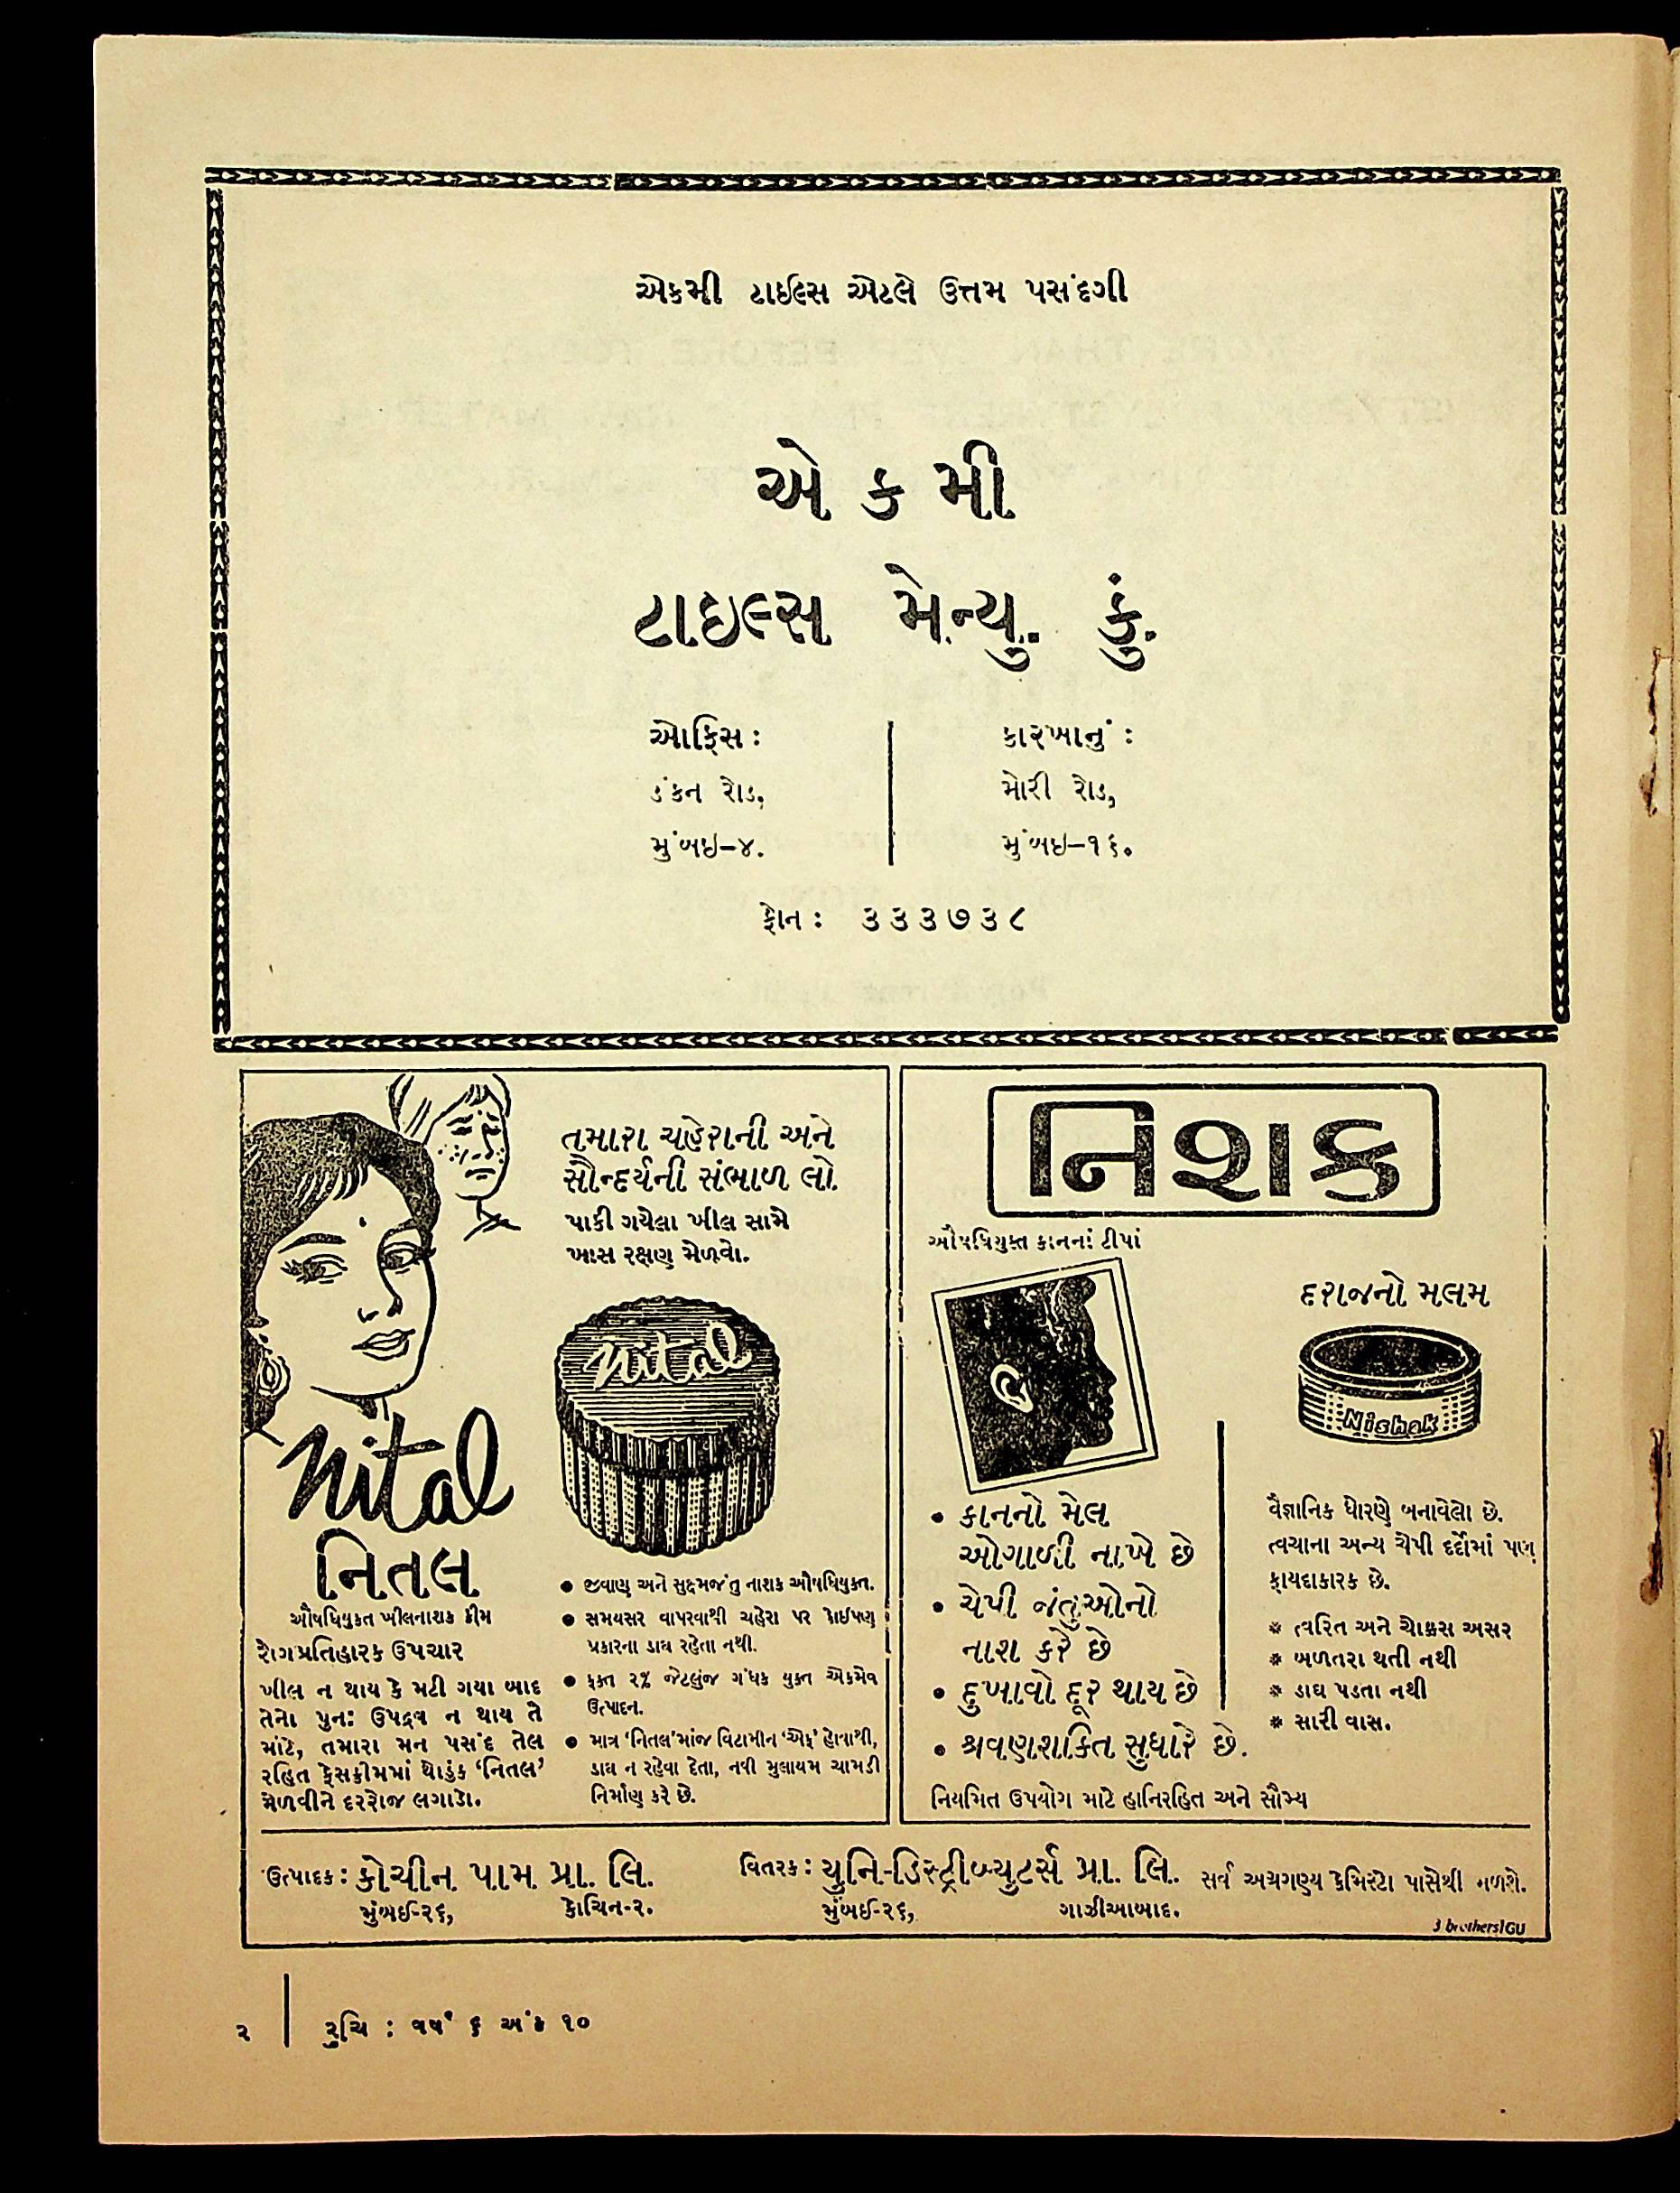 એકમી ટાઇલ્સ એટલે ઉત્તમ પસંદગી
એ ક મી
ટાઇલ્સ મેન્યુ. કું.
ઓફિસ :
ડંકન રોડ,
મુંબઇ–૪.
કારખાનું :
મોરી રોડ,
મુંબઇ–૧૬.
ફોન : ૩૩૩૭૩૮
તમારા ચહેરાની અને
સૌન્દર્યની સંભાળ લો.
પાકી ગયેલા ખીલ સામે
ખાસ રક્ષણ મેળવો.
Nital
Nital
નિતલ
ઔષધિયુક્ત ખીલનાશક ક્રીમ
રોગપ્રતિહારક ઉપચાર
ખીલ ન થાય કે મટી ગયા બાદ
તેનો પુનઃ ઉપદ્રવ ન થાય તે
માંટે, તમારા મન પસંદ તેલ
રહિત ફેસક્રીમમાં થોડુંક ‘નિતલ’
મેળવીને દરરોજ લગાડો.
• જીવાણુ અને સુક્ષ્મજંતુ નાશક ઔષધિયુક્ત.
• સમયસર વાપરવાથી ચહેરા પર કોઈપણ
પ્રકારના ડાઘ રહેતા નથી.
• ફક્ત ૨% જેટલુંજ ગંધક યુક્ત એકમેવ
ઉત્પાદન.
• માત્ર ‘નિતલ’માંજ વિટામીન ‘એફ’ હોવાથી,
ડાઘ ન રહેવા દેતા, નવી મુલાયમ ચામડી
નિર્માણ કરે છે.
નિશક
ઔષધિયુક્ત કાનનાં ટીપાં
• કાનનો મેલ
ઓગાળી નાખે છે
• ચેપી જંતુઓનો
નાશ કરે છે
• દુખાવો દૂર થાય છે
• શ્રવણશક્તિ સુધારે છે.
દરાજનો મલમ
Nishak
વૈજ્ઞાનિક ધોરણે બનાવેલો છે.
ત્વચાના અન્ય ચેપી દર્દોમાં પણ
ફાયદાકારક છે.
* ત્વરિત અને ચોક્કસ અસર
* બળતરા થતી નથી
* ડાઘ પડતા નથી
* સારી વાસ.
નિયમિત ઉપયોગ માટે હાનિરહિત અને સૌમ્ય
ઉત્પાદક : કોચીન પામ પ્રા. લિ.
મુંબઈ-૨૬, કોચિન-૨.
વિતરક : યુનિ-ડિસ્ટ્રીબ્યુટર્સ પ્રા. લિ.
મુંબઈ-૨૬, ગાઝીઆબાદ.
સર્વ અગ્રગણ્ય કેમિસ્ટો પાસેથી મળશે.
3 brothers/GU
૨ રુચિ : વર્ષ ૬ અંક ૧૦